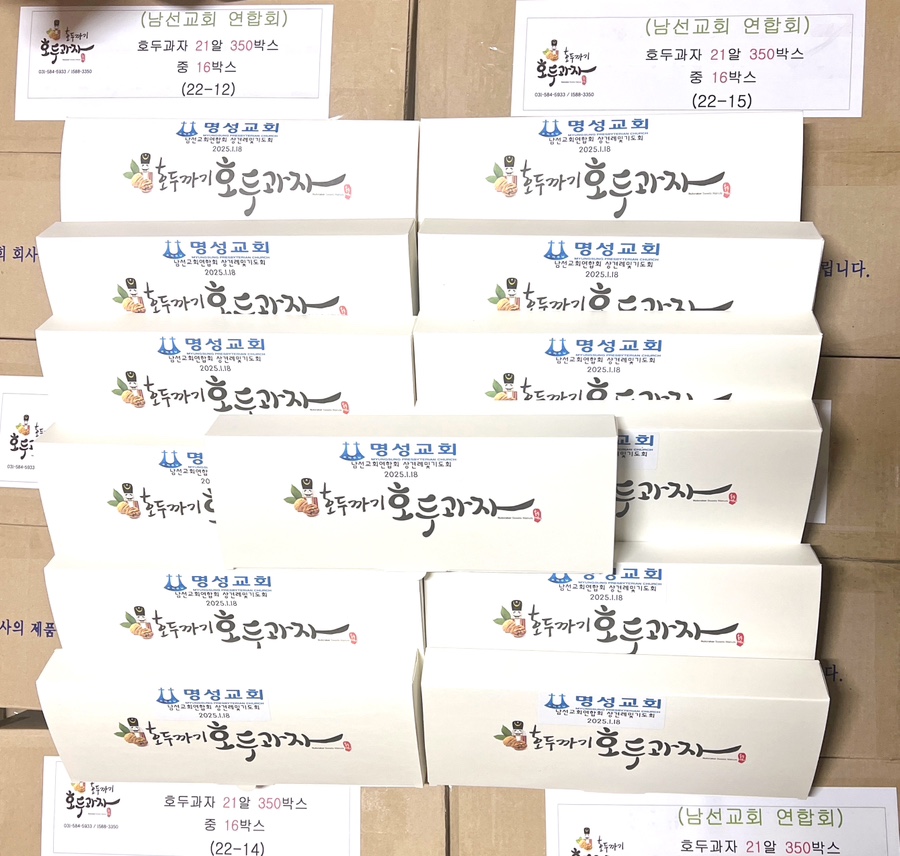 (남선교회 연합회)
호두까기
호두과자
031-584-5933 / 1588-3350
호두과자 21알 350박스
중 16박스
(22-12)
(남선교회 연합회)
호두까기
호두과자
031-584-5933 / 1588-3350
호두과자 21알 350박스
중 16박스
(22-15)
명성교회
MYUNGSUNG PRESBYTERIAN CHURCH
남선교회연합회 상견례및기도회
2025.1.18
호두까기 호두과자
명성교회
MYUNGSUNG PRESBYTERIAN CHURCH
남선교회연합회 상견례및기도회
2025.1.18
호두까기 호두과자
회 회사
명성교회
MYUNGSUNG PRESBYTERIAN CHURCH
남선교회연합회 상견례및기도회
2025.1.18
호두까기 호두과자
명성교회
MYUNGSUNG PRESBYTERIAN CHURCH
남선교회연합회 상견례및기도회
2025.1.18
호두까기 호두과자
립니다.
명성교회
MYUNGSUNG PRESBYTERIAN CHURCH
남선교회연합회 상견례및기도회
2025.1.18
호두까기 호두과자
명성교회
MYUNGSUNG PRESBYTERIAN CHURCH
남선교회연합회 상견례및기도회
2025.1.18
호두까기 호두과자
031-584-5933
명
남선교회연합
20
호두까기
명성교회
MYUNGSUNG PRESBYTERIAN CHURCH
남선교회연합회 상견례및기도회
2025.1.18
호두까기 호두과자
교회
두과자
명성교회
MYUNGSUNG PRESBYTERIAN CHURCH
남선교회연합회 상견례및기도회
2025.1.18
호두까기 호두과자
명성교회
MYUNGSUNG PRESBYTERIAN CHURCH
남선교회연합회 상견례및기도회
2025.1.18
호두까기 호두과자
사의 제품
명성교회
MYUNGSUNG PRESBYTERIAN CHURCH
남선교회연합회 상견례및기도회
2025.1.18
호두까기 호두과자
명성교회
MYUNGSUNG PRESBYTERIAN CHURCH
남선교회연합회 상견례및기도회
2025.1.18
호두까기 호두과자
다.
호두까기
호두과자
031-584-5933 / 1588-3350
호두과자 21알 350박스
중 16박스
(22-14)
(남선교회 연합회)
호두까기
호두과자 21알 350박스